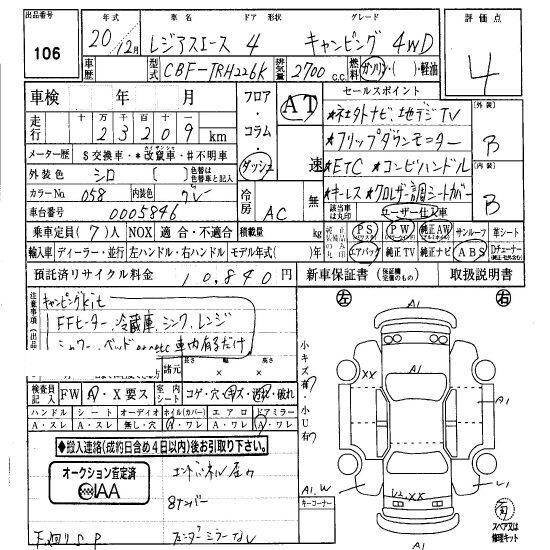 出品番号 年式 車名 ドア 形状 グレード 評価点
106 20年12月 レジアスエース 4 キャンピング 4WD 4
車歴 型式 CBF-TRH226K 排気量 2700 c.c. 燃料 ガソリン・( )・軽油
車検 年 月 フロア・コラム・ダッシュ AT セールスポイント
走行 十 万 千 百 十 一 23209 km 速 ★社外ナビ、地デジTV 外装 B
メーター歴 $ 交換車・* 改竄車・# 不明車 ★フリップダウンモニター
外装色 シロ ( ) 色替は色替車と記入 ★ETC ★コンビハンドル 内装 B
カラーNo. 058 内装色 グレー 冷房 AC 無 ★キーレス
車台番号 0005846 該当車は丸印 ユーザー仕入車
乗車定員 (7) 人 NOX 適合・不適合 積載量 kg PS PW 純正AW サンルーフ 革シート
輸入車 ディーラー・並行 左ハンドル・右ハンドル モデル年式( )年 エアバック 純正TV 純正ナビ ABS Dチューナー
預託済リサイクル料金 10,840 円 新車保証書 (保証継承可能なもの) 取扱説明書
注意事項 キャンピングkit
FFヒーター、冷蔵庫、シンク、レンジ
シャワー、ベッド etc 車内有るだけ
諸元 長さ 幅 高さ
検査員記入 FW A・X要ス 室内シート コゲ・穴・キズ・汚れ・破れ
ハンドル シート オーディオ ホイル(カバー) エアロ ドアミラー
A・スレ A・スレ 無し・穴 A・ワレ A・ワレ A・ワレ
◆搬入連絡(成約日含め4日以内)後お引取り下さい。
オークション査定済
IAA
8ナンバー
フェンダーミラーなし
下廻りS,P
小キズ有
小U有
A1.W
キーコーナー
左 右
A1
XX
A1
A1
スペア又は修理キット